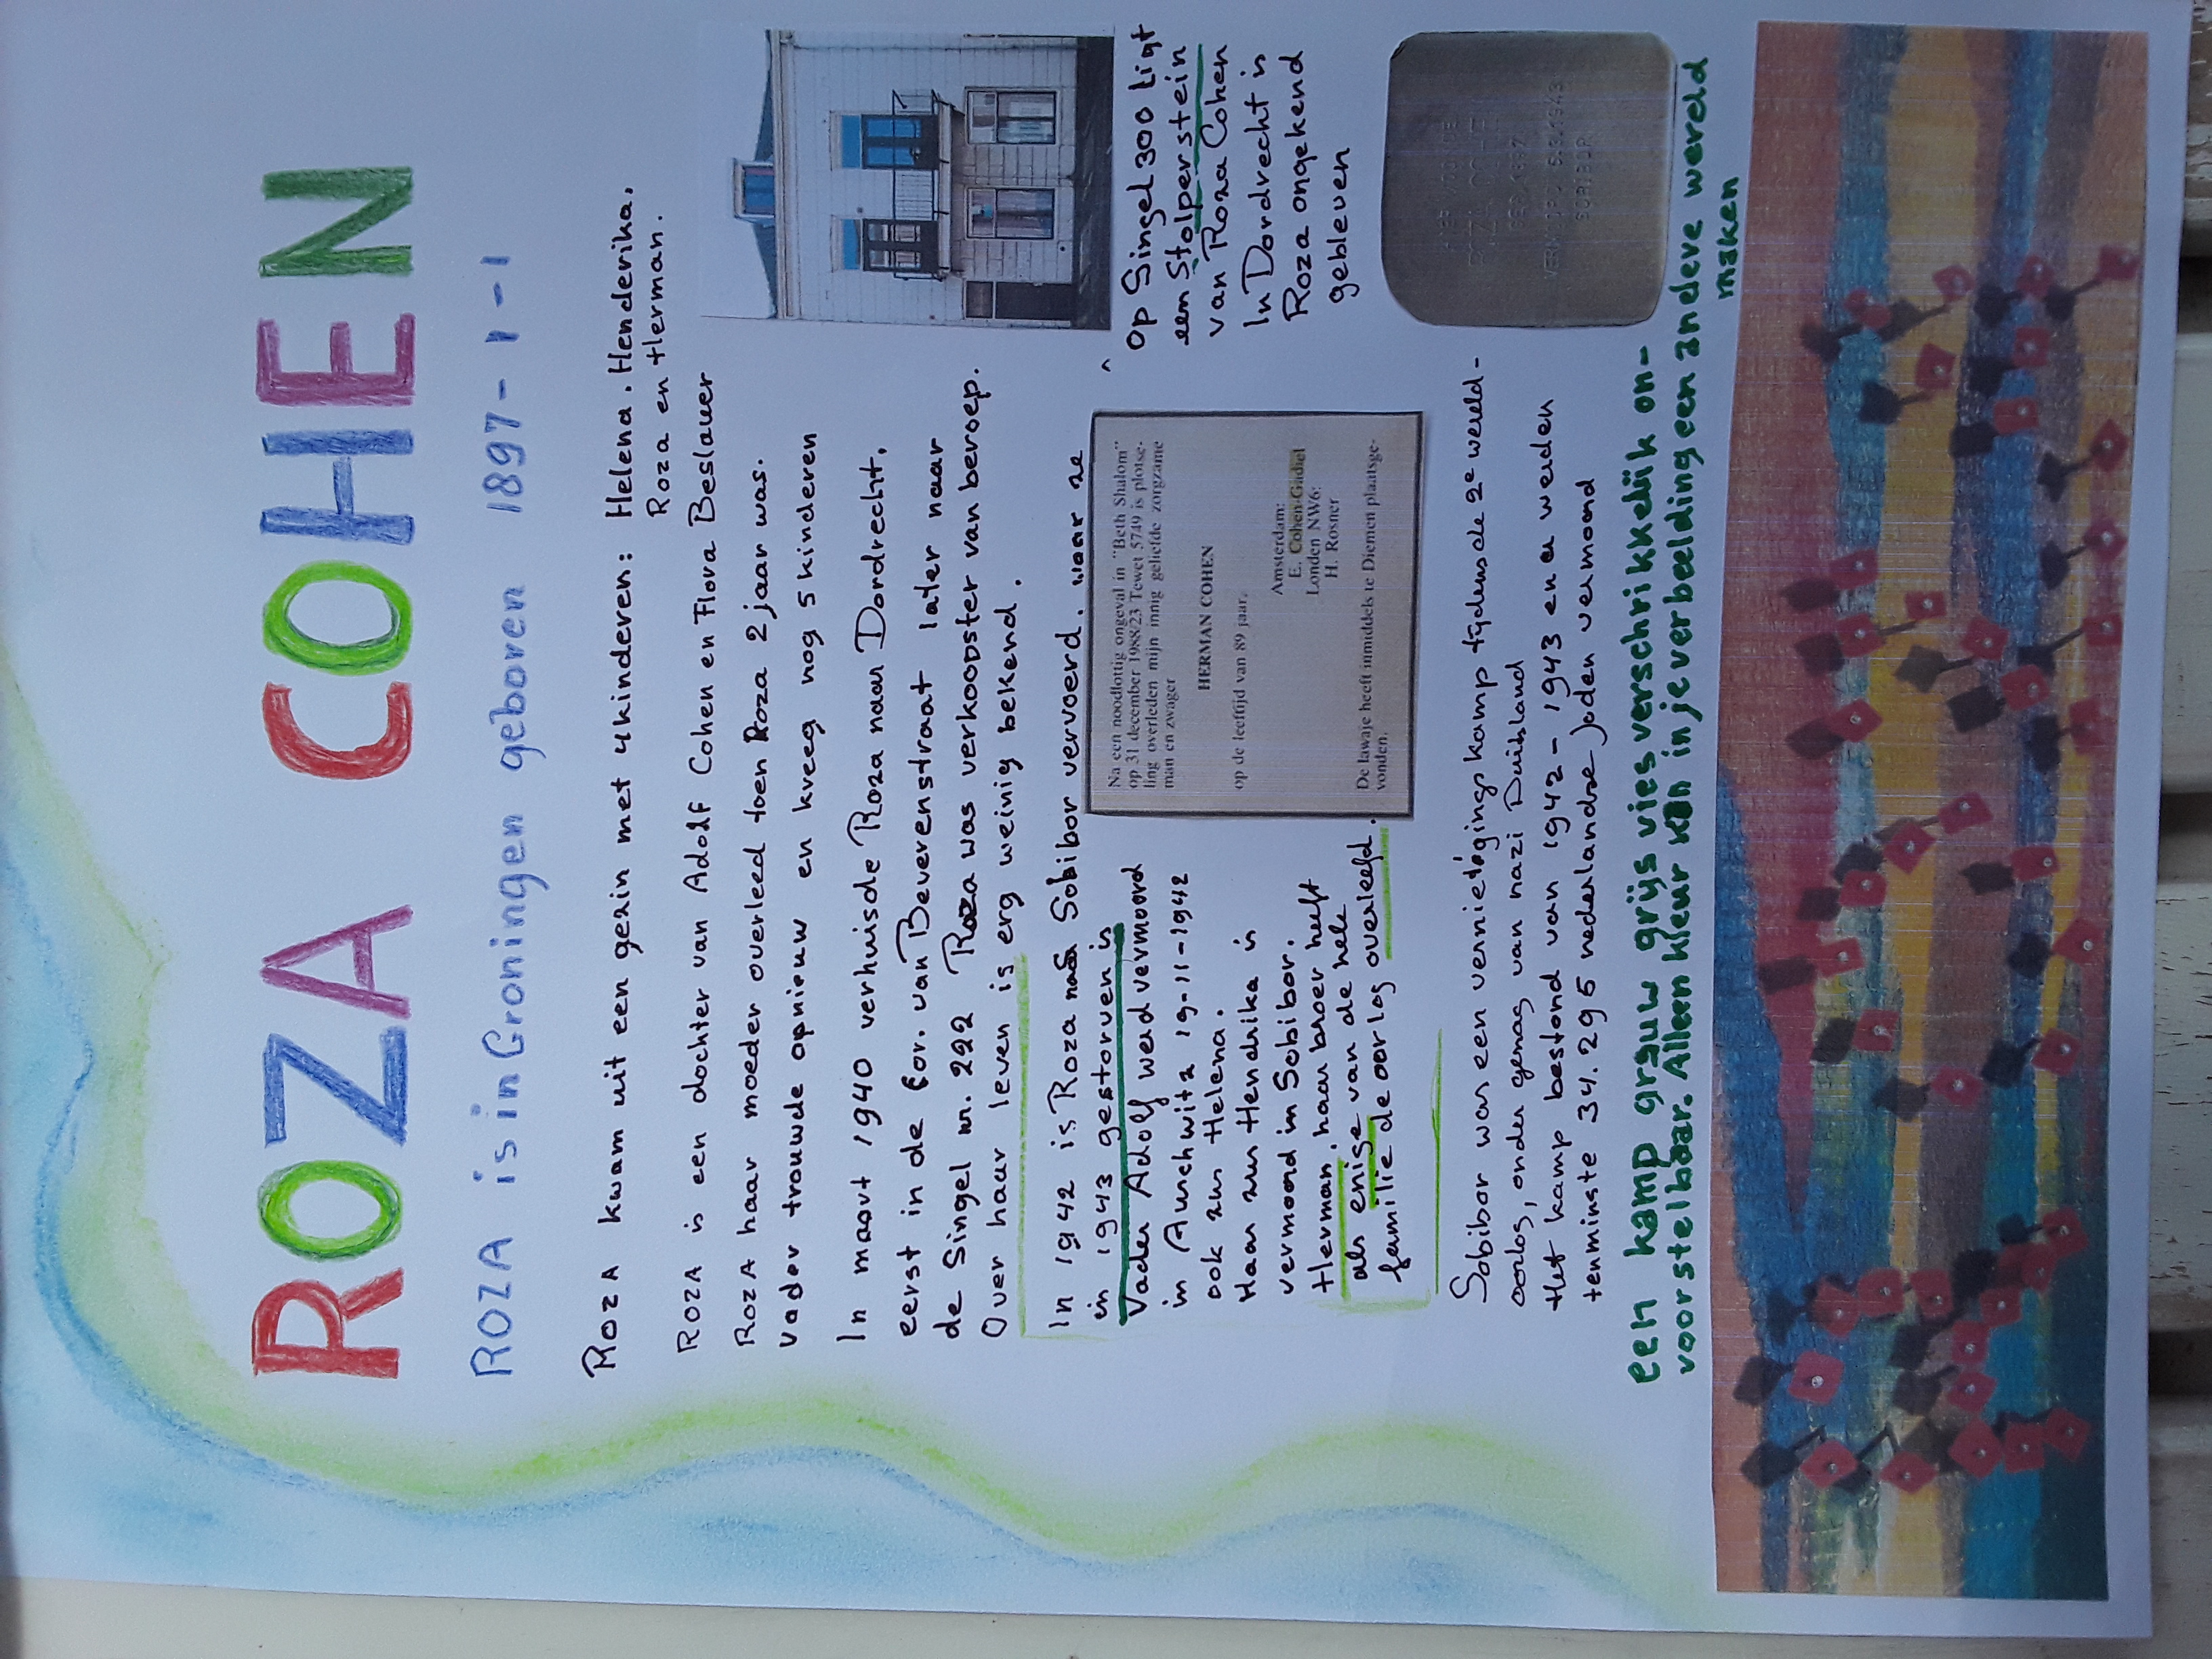 ROZA COHEN
ROZA is in Groningen geboren 1897-1-1
Roza kwam uit een gezin met 4 kinderen: Helena. Henderika.
Roza en Herman.
ROZA is een dochter van Adolf Cohen en Flora Beslauer
ROZA haar moeder overleed toen Roza 2 jaar was.
Vader trouwde opnieuw en kreeg nog 5 kinderen
In maart 1940 verhuisde Roza naar Dordrecht.
eerst in de Cor. van Beverenstraat later naar
de Singel nr. 292 Roza was verkoopster van beroep.
Over haar leven is erg weinig bekend.
In 1942 is Roza naar Sobibor vervoerd. waar ze
in 1943 gestorven is
Vader Adolf werd vermoord
in Auschwitz 19-11-1942
ook zus Helena.
Haar zus Hendrika is
vermoord in Sobibor.
Herman, haar broer heeft
als enige van de hele
familie de oorlog overleefd.
Na een noodlottig ongeval in "Beth Shalom"
op 31 december 1988/23 Tewet 5749 is plotse-
ling overleden mijn innig geliefde zorgzame
man en zwager
HERMAN COHEN
op de leeftijd van 89 jaar.
Amsterdam:
E. Cohen-Gadiel
Londen NW6:
H. Rosner
De lawaje heeft inmiddels te Diemen plaatsge-
vonden.
^ Op Singel 300 ligt
een Stolperstein
van Roza Cohen
In Dordrecht is
Roza ongekend
gebleven
HIER WOONDE
ROZA COHEN
GEB. 1897
VERMOORD 5.3.1943
SOBIBOR
Sobibor was een vernietigingskamp tijdens de 2e wereld-
oorlog, onder gezag van nazi Duitsland
Het kamp bestond van 1942 - 1943 en er werden
tenminste 34.295 nederlandse joden vermoord
een kamp grauw grijs vies verschrikkelijk on-
voorstelbaar. Alleen kleur kan in je verbeelding een andere wereld
maken